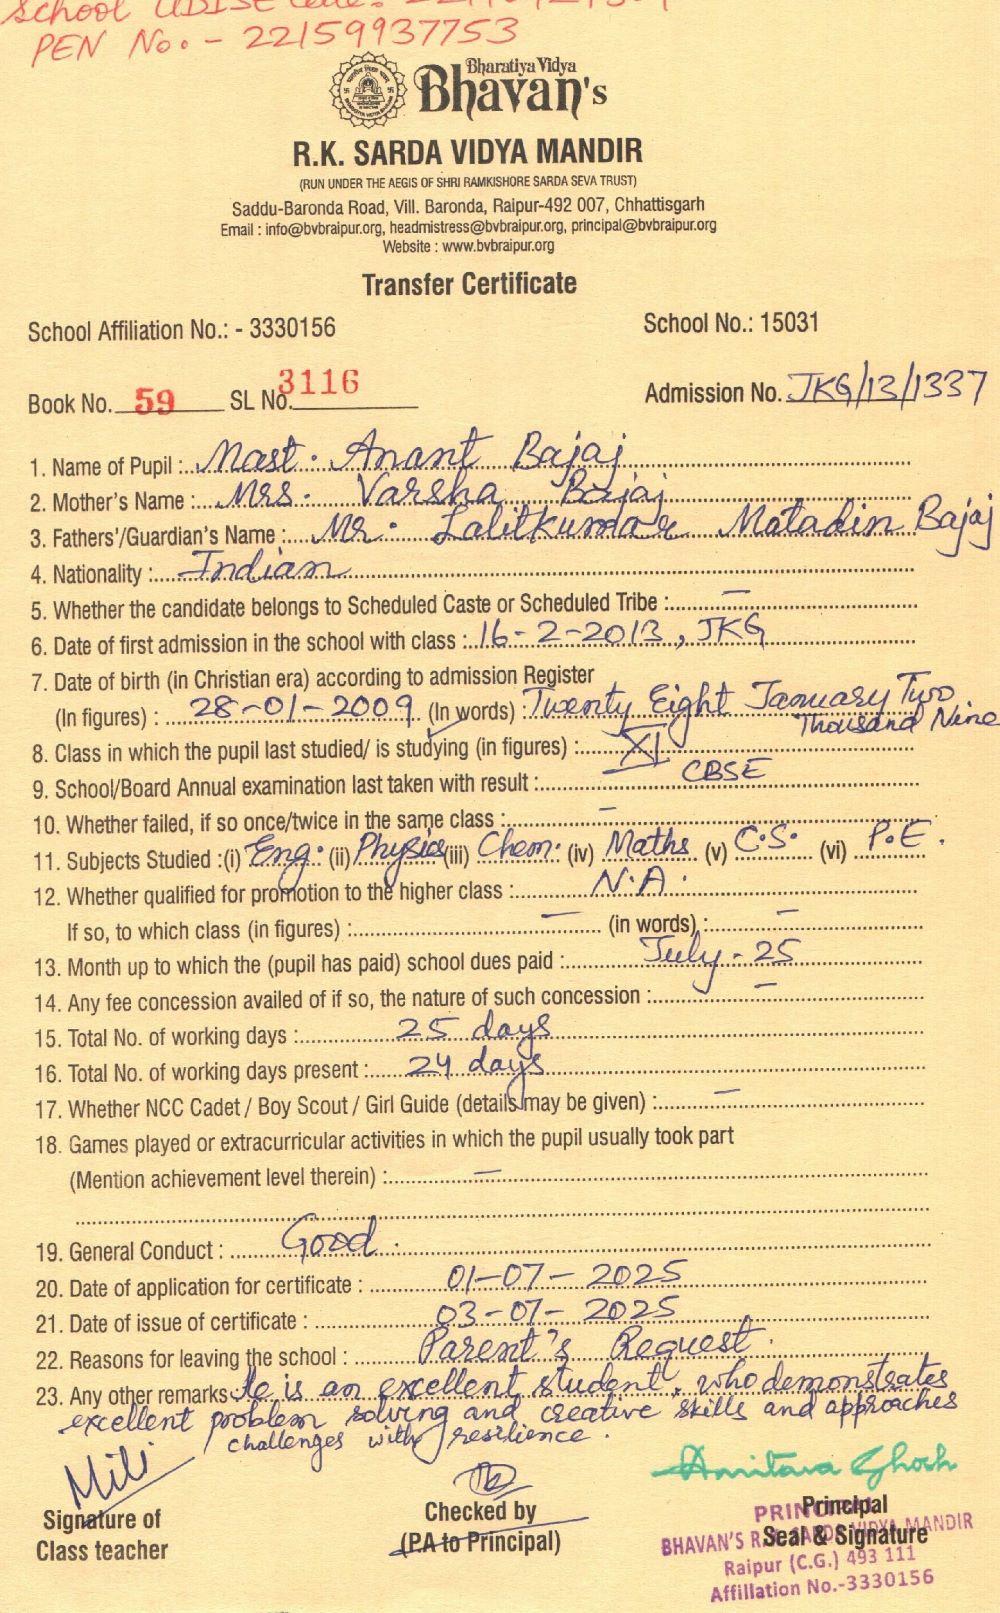 School UDISE Code:
PEN No. - 22159937753
Bharatiya Vidya
Bhavan's
R.K. SARDA VIDYA MANDIR
(RUN UNDER THE AEGIS OF SHRI RAMKISHORE SARDA SEVA TRUST)
Saddu-Baronda Road, Vill. Baronda, Raipur-492 007, Chhattisgarh
Email : info@bvbraipur.org, headmistress@bvbraipur.org, principal@bvbraipur.org
Website : www.bvbraipur.org
Transfer Certificate
School Affiliation No.: - 3330156 School No.: 15031
Book No. 59 SL No. 3116 Admission No. JKG/13/1337
1. Name of Pupil : Mast. Anant Bajaj
2. Mother's Name : Mrs. Varsha Bajaj
3. Fathers'/Guardian's Name : Mr. Lalitkumar Matadin Bajaj
4. Nationality : Indian
5. Whether the candidate belongs to Scheduled Caste or Scheduled Tribe : —
6. Date of first admission in the school with class : 16-2-2013, JKG
7. Date of birth (in Christian era) according to admission Register
(In figures) : 28-01-2009 (In words) : Twenty Eight January Two
Thousand Nine
8. Class in which the pupil last studied/ is studying (in figures) : XI
9. School/Board Annual examination last taken with result : CBSE
10. Whether failed, if so once/twice in the same class : —
11. Subjects Studied :(i) Eng. (ii) Physics (iii) Chem. (iv) Maths (v) C.S. (vi) P.E.
12. Whether qualified for promotion to the higher class : N.A.
If so, to which class (in figures) : — (in words) : —
13. Month up to which the (pupil has paid) school dues paid : July - 25
14. Any fee concession availed of if so, the nature of such concession : —
15. Total No. of working days : 25 days
16. Total No. of working days present : 24 days
17. Whether NCC Cadet / Boy Scout / Girl Guide (details may be given) : —
18. Games played or extracurricular activities in which the pupil usually took part
(Mention achievement level therein) : —
19. General Conduct : Good.
20. Date of application for certificate : 01-07-2025
21. Date of issue of certificate : 03-07-2025
22. Reasons for leaving the school : Parent's Request.
23. Any other remarks He is an excellent student, who demonstrates
excellent problem solving and creative skills and approaches
challenges with resilience.
Mili
Amitava Ghosh
Signature of
Class teacher
Checked by
(P.A to Principal)
Principal
Seal & Signature
PRINCIPAL
BHAVAN'S R.K. SARDA VIDYA MANDIR
Raipur (C.G.) 493 111
Affillation No.-3330156